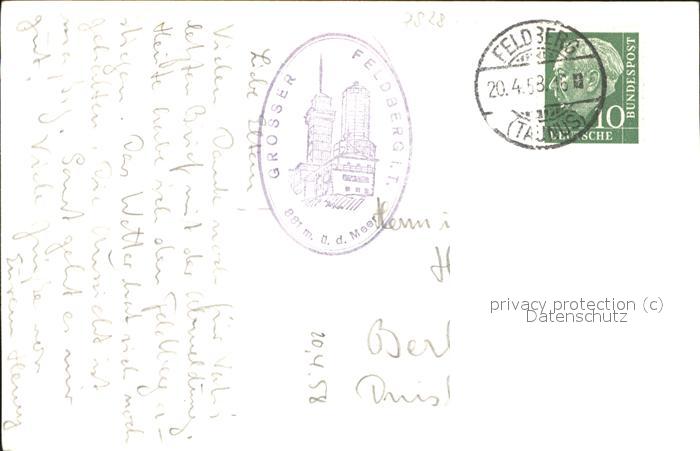 7828
Liebe Eltern!
Vielen Dank noch für Vati's
letzten Brief mit der Abmeldung.
Heute habe ich den Feldberg er-
stiegen. Das Wetter hat sich noch
gehalten. Die Aussicht ist
mässig. Sonst geht es mir
gut! Viele Grüße von
Eurem
20.4.58
GROSSER FELDBERG i. T.
881 m. ü. d. Meer
FELDBERG
20.4.58
(TAUNUS)
10
DEUTSCHE
BUNDESPOST
Herrn
H
Ber
privacy protection (c)
Datenschutz